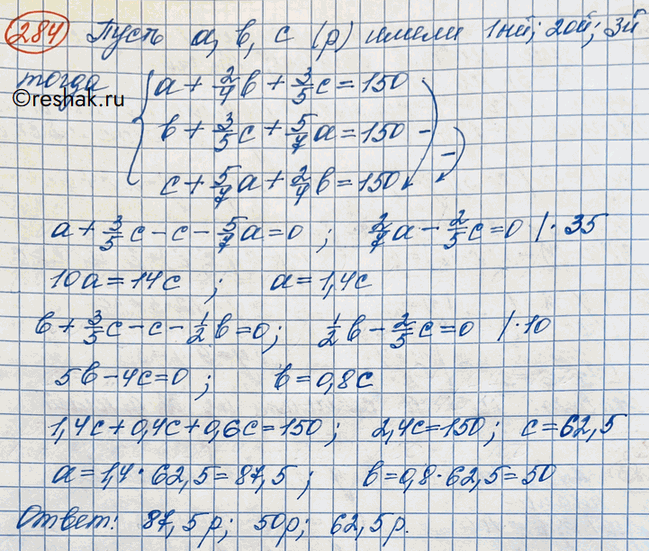 284 Пусть a, b, c (р) имели 1ый; 2ой; 3й
тогда { a + 2/4b + 3/5c = 150
©reshak.ru
b + 3/5c + 5/7a = 150 -
c + 5/7a + 2/4b = 150 -
a + 3/5c - c - 5/7a = 0 ; 2/7a - 2/5c = 0 | · 35
10a = 14c ; a = 1,4c
b + 3/5c - c - 1/2b = 0; 1/2b - 2/5c = 0 | · 10
5b - 4c = 0 ; b = 0,8c
1,4c + 0,4c + 0,6c = 150 ; 2,4c = 150 ; c = 62,5
a = 1,4 · 62,5 = 87,5 ; b = 0,8 · 62,5 = 50
Ответ: 87,5р; 50р; 62,5р.